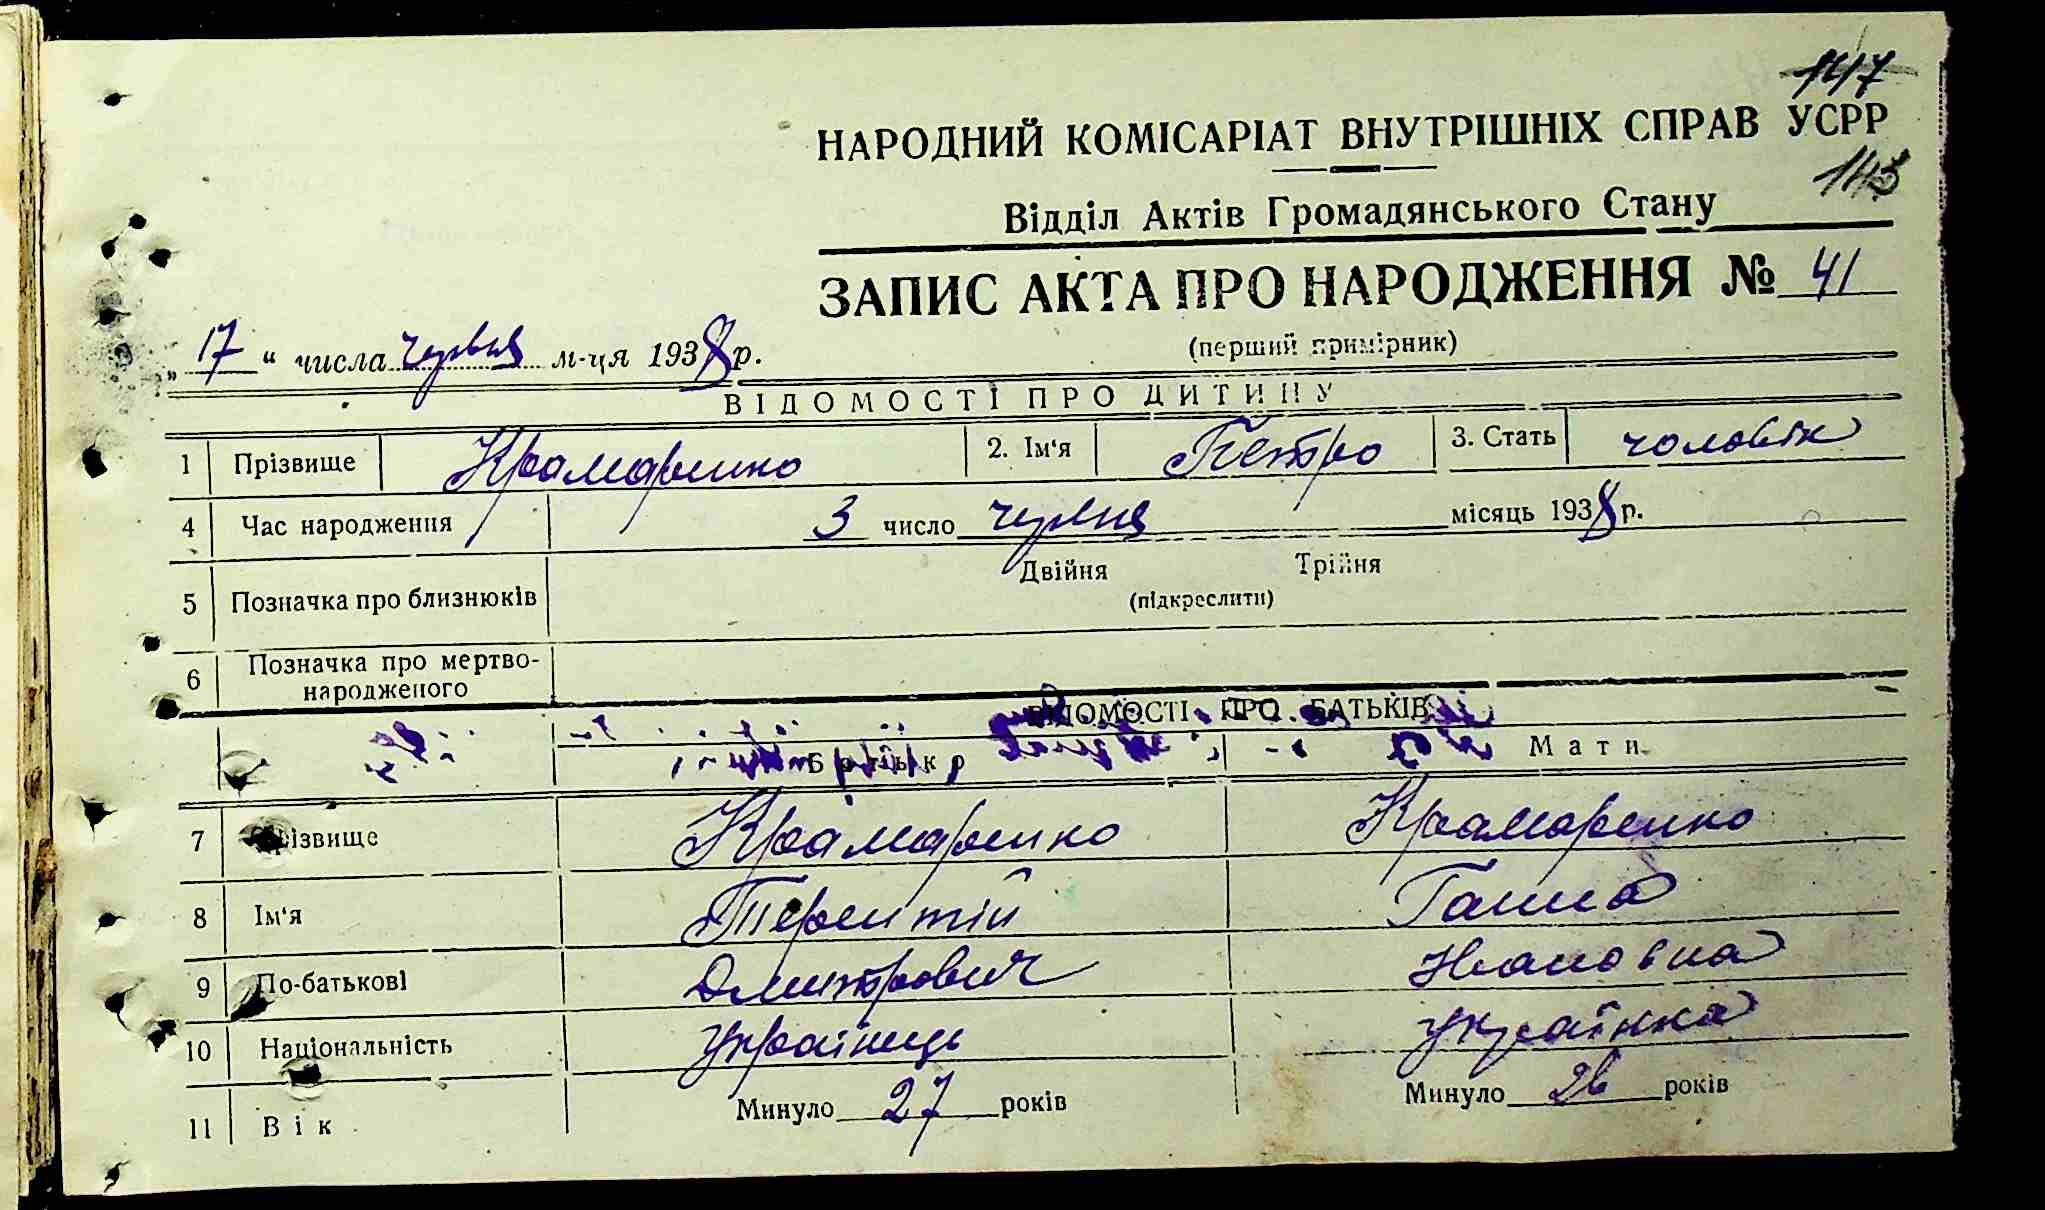 147
НАРОДНИЙ КОМІСАРІАТ ВНУТРІШНІХ СПРАВ УСРР
143
Відділ Актів Громадянського Стану
ЗАПИС АКТА ПРО НАРОДЖЕННЯ № 41
(перший примірник)
„17“ числа червня м-ця 1938 р.
ВІДОМОСТІ ПРО ДИТИНУ
1 Прізвище Крамаренко 2. Ім'я Петро 3. Стать чоловік
4 Час народження 3 число червня місяць 1938 р.
5 Позначка про близнюків Двійня Трійня
(підкреслити)
6 Позначка про мертво-
народженого
ВІДОМОСТІ ПРО БАТЬКІВ
Батько Мати
7 Прізвище Крамаренко Крамаренко
8 Ім'я Терентій Ганна
9 По-батькові Дмитрович Івановна
10 Національність українець українка
11 Вік Минуло 27 років Минуло 26 років